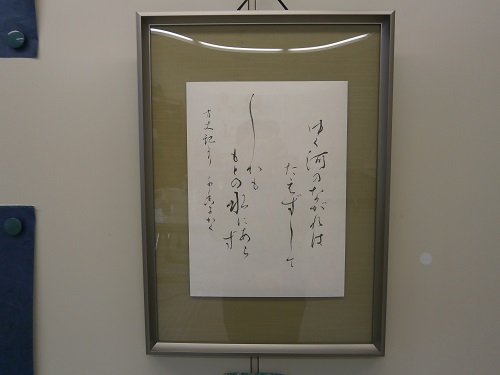 ゆく河のながれは
たえずして
しかも
もとの水にあら
ず
方丈記より